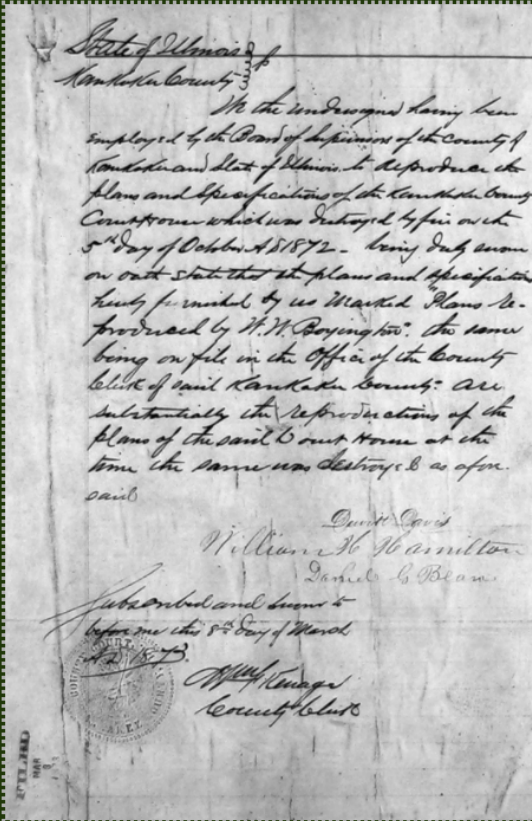 State of Illinois
Kankakee County
We the undersigned having been
employed by the Board of Supervisors of the County of
Kankakee and State of Illinois to Reproduce the
plans and Specifications of the Kankakee County
Court House which was destroyed by fire on the
5th day of October AD 1872 - being duly sworn
on oath state that the plans and specification
hereby furnished by us Marked "Plans Re-
produced by W. W. Boyington". the same
being on file in the Office of the County
Clerk of said Kankakee County - are
substantially the reproductions of the
plans of the said Court House at the
time the same was destroyed as afore-
said
Davis
William H Hamilton
Daniel C
Subscribed and sworn to
before me this 8th day of March
AD 1873.
County Clerk
FILED
MAR